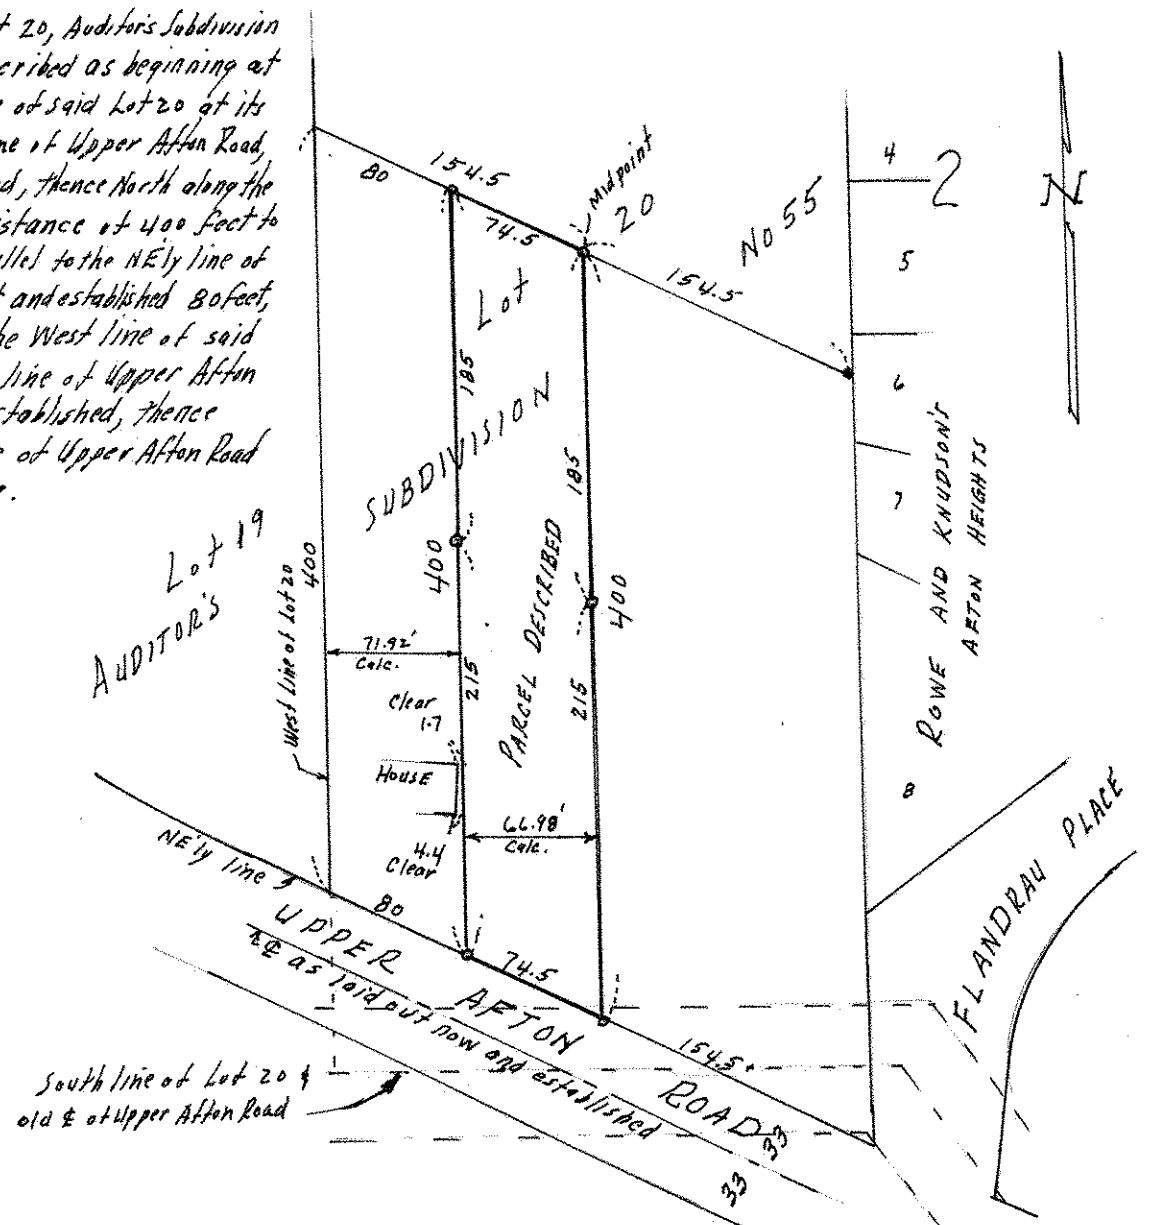 t 20, Auditor's Subdivision
cribed as beginning at
of said Lot 20 at its
ne of Upper Afton Road,
d, thence North along the
istance of 400 feet to
llel to the NE'ly line of
t and established 80 feet,
he West line of said
line of Upper Afton
stablished, thence
e of Upper Afton Road
154.5
80
74.5
Midpoint
20
No 55
154.5
Lot
4
2
N
5
6
7
8
ROWE AND KNUDSON'S
AFTON HEIGHTS
185
185
SUBDIVISION
Lot 19
AUDITOR'S
400
West line of Lot 20
400
400
PARCEL DESCRIBED
71.92'
Calc.
215
215
Clear
1.7
HOUSE
4.4
Clear
66.98'
Calc.
NE'ly line
80
74.5
154.5
UPPER AFTON ROAD
℄ as laid out now and established
33
33
FLANDRAU PLACE
South line of Lot 20 &
old ℄ of Upper Afton Road